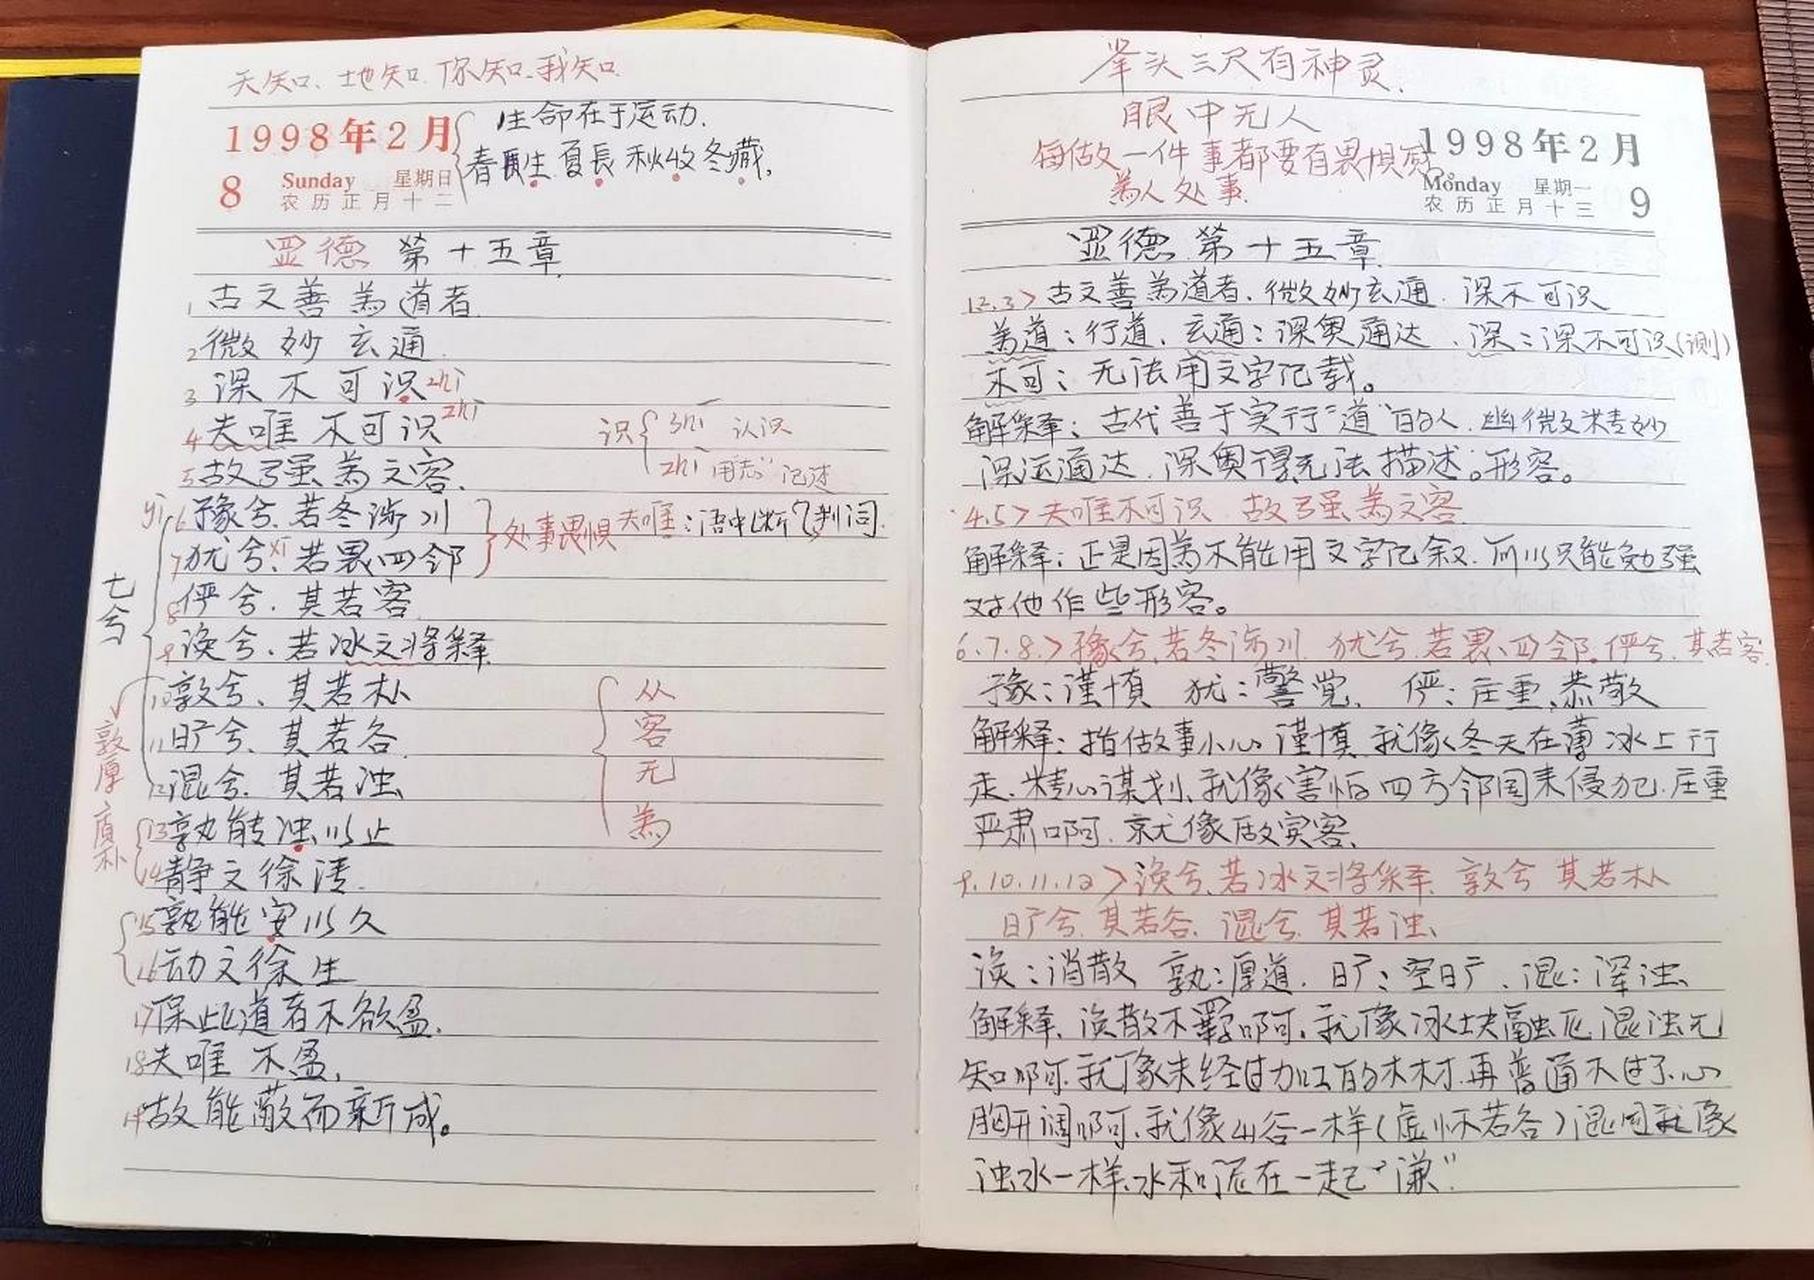 天知、地知、你知、我知
1998年2月
8
Sunday 星期日
农历正月十二
生命在于运动.
春生夏長秋收冬藏.
显德 第十五章
1 古之善為道者
2 微妙玄通
3 深不可识 zhi
4 夫唯不可识 zhi
识 { shi 认识
zhi 用"志" 记述
5 故强為之容.
yi 6 豫兮.若冬涉川
7 犹兮.xi 若畏四邻
} 处事畏惧
夫唯:语中断判词.
七兮
8 俨兮.其若客
9 涣兮.若冰之将释
10 敦兮.其若朴
11 旷兮.其若谷
12 混兮.其若浊
敦厚质朴
从容无為
13 孰能浊以止
14 静之徐清.
15 孰能安以久
16 动之徐生
17 保此道者不欲盈.
18 夫唯不盈,
19 故能敝而新成。
举头三尺有神灵.
眼中无人
每做一件事都要有畏惧感
為人处事.
1998年2月
Monday 星期一
农历正月十三
9
显德 第十五章
1.2.3> 古之善為道者.微妙玄通.深不可识
為道:行道.玄通:深奥通达.深:深不可识(测)
不可:无法用文字记载。
解释:古代善于实行"道"的人.幽微精妙
深远通达.深奥得无法描述。形容。
4.5> 夫唯不可识 故强為之容
解释:正是因為不能用文字记叙.所以只能勉强
对他作些形容。
6.7.8.> 豫兮.若冬涉川 犹兮.若畏四邻.俨兮.其若客.
豫:谨慎 犹:警觉 俨:庄重,恭敬
解释:指做事小心谨慎 就像冬天在薄冰上行
走.精心谋划、就像害怕四方邻国来侵犯.庄重
严肃啊.就像做宾客.
9.10.11.12> 涣兮.若冰之将释 敦兮 其若朴
旷兮.其若谷.混兮 其若浊
涣:消散 孰:厚道.旷:空旷.混:浑浊
解释.涣散不羁啊.就像冰块融化.混浊无
知啊.就像未经过加工的木材.再普通不过了.心
胸开阔啊.就像山谷一样(虚怀若谷)混同就像
浊水一样.水和泥在一起"谦"